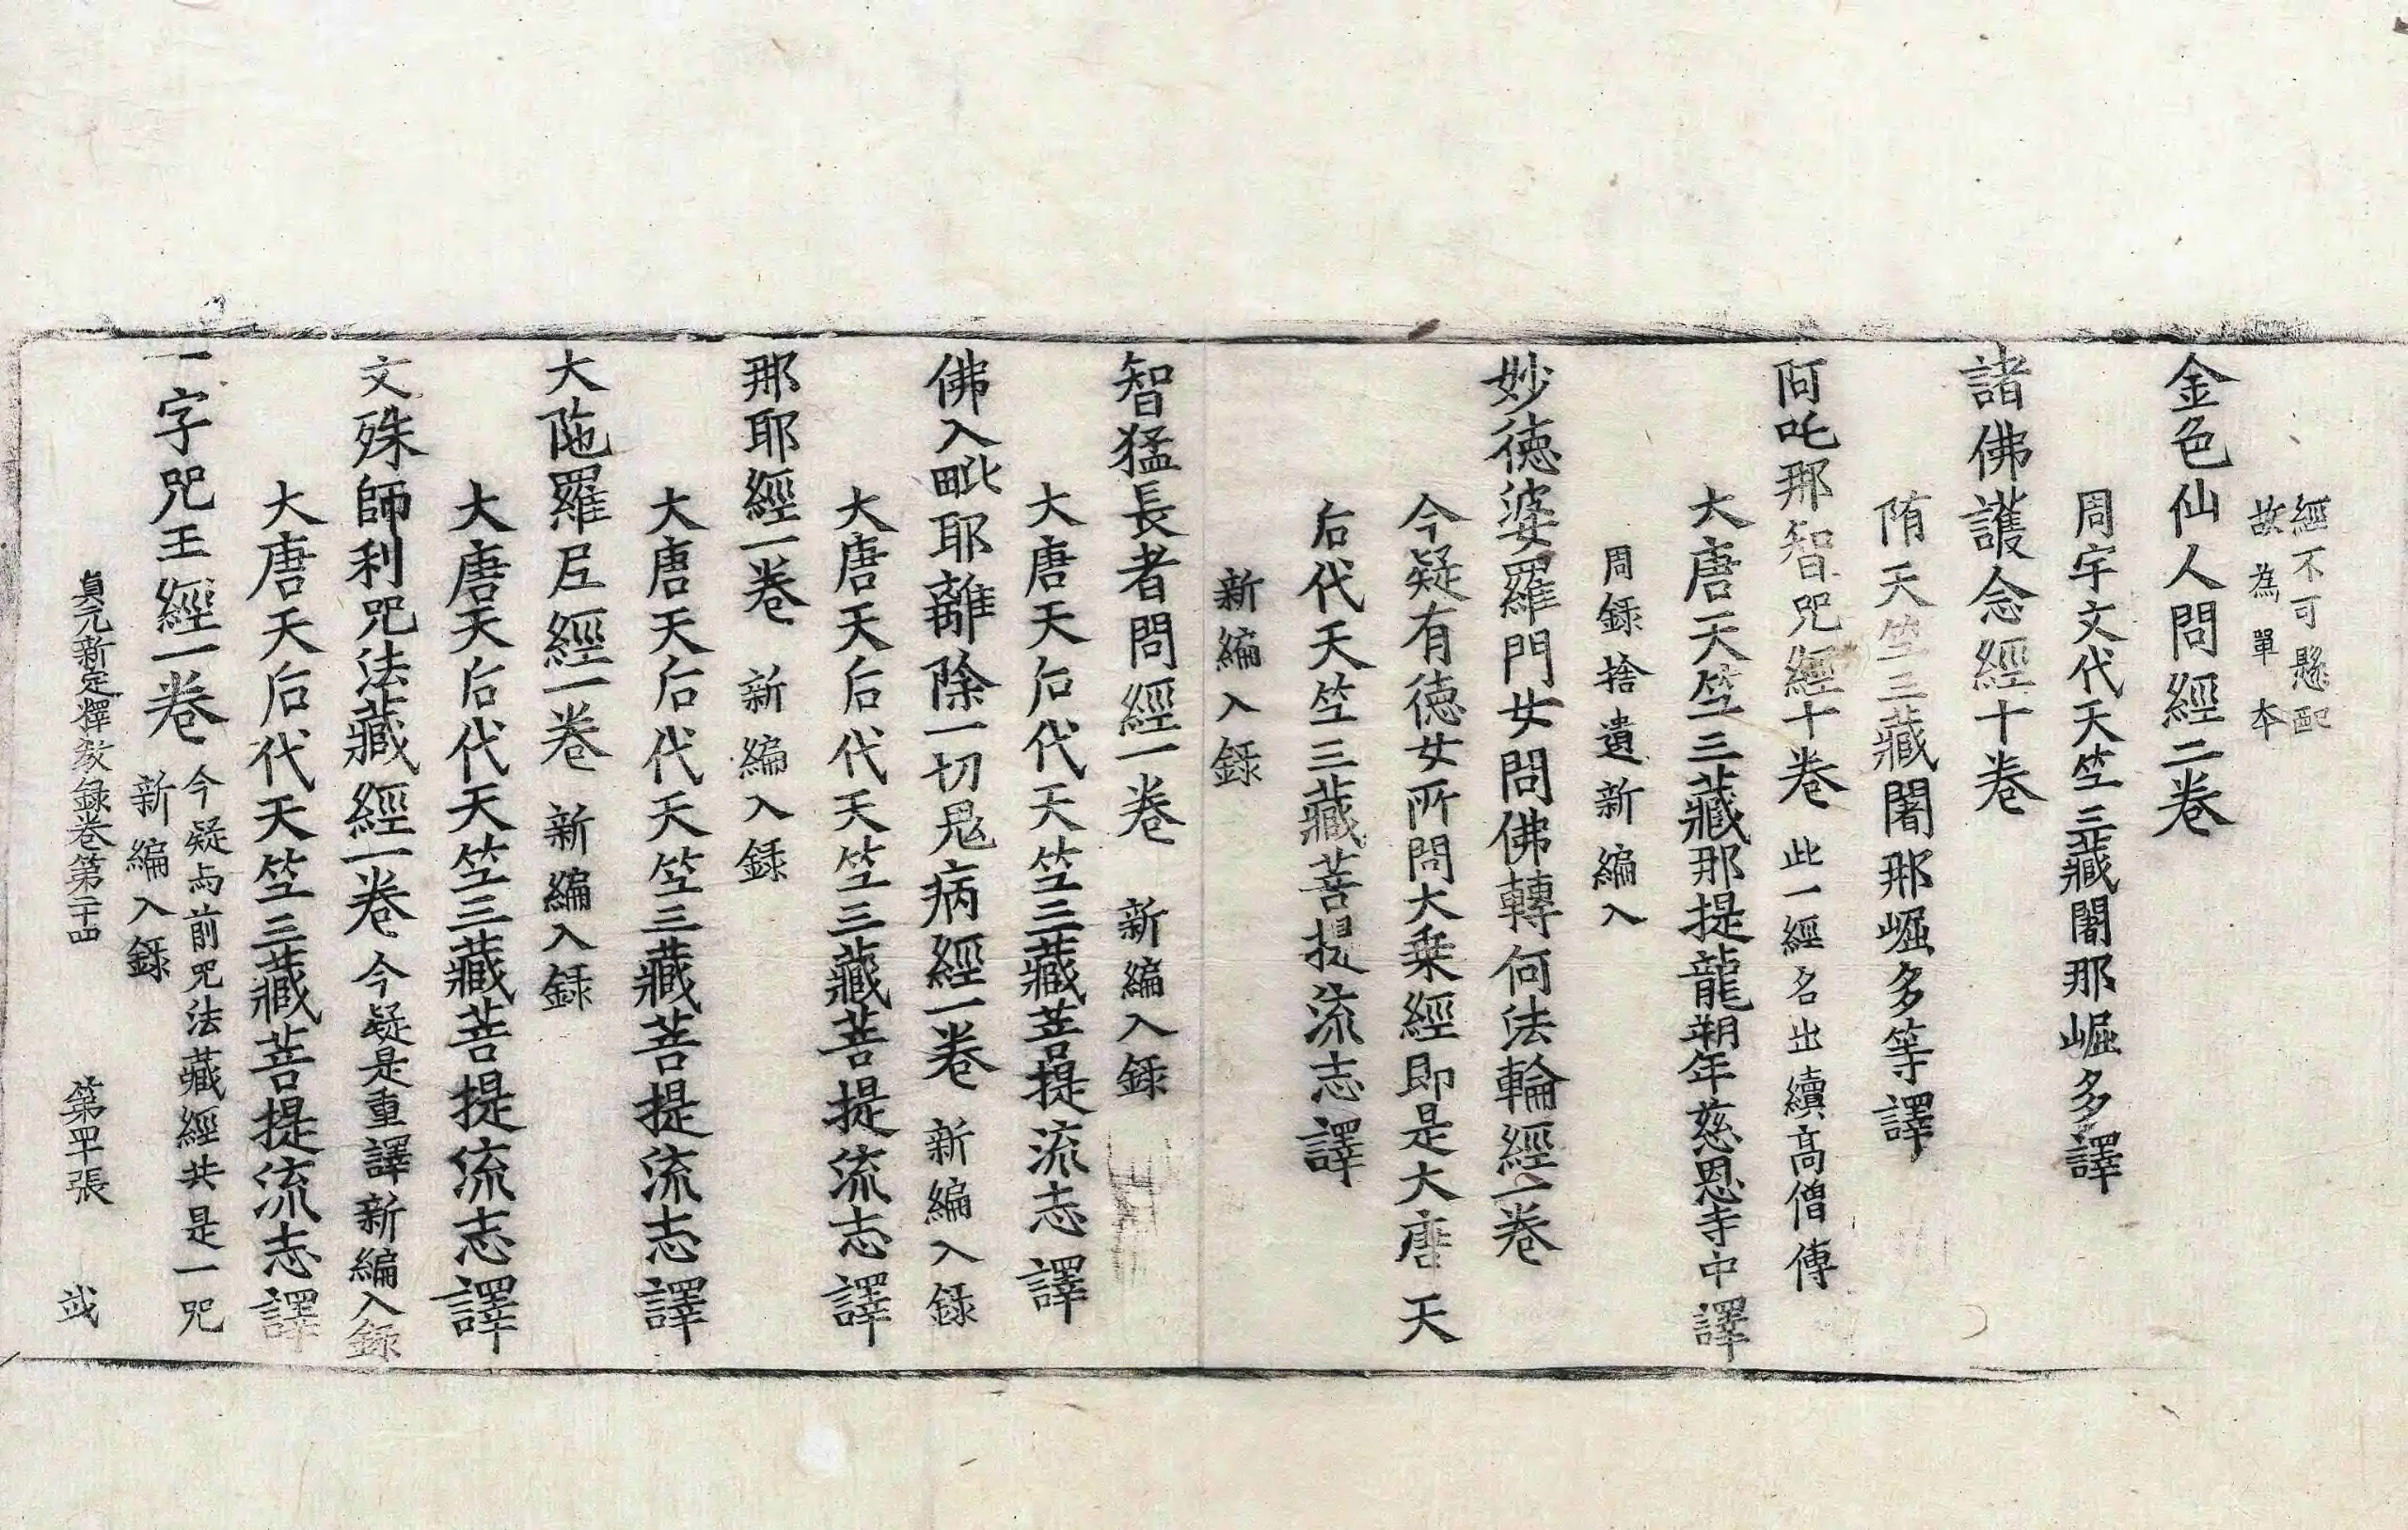 經不可懸配
故為單本
金色仙人問經二卷
周宇文代天竺三藏闍那崛多譯
諸佛護念經十卷
隋天竺三藏闍那崛多等譯
阿吒那智呪經十卷 此一經名出續高僧傳
大唐天竺三藏那提龍朔年慈恩寺中譯
周録捨遺新編入
妙德婆羅門女問佛轉何法輪經一卷
今疑有德女所問大乗經即是大唐天
后代天竺三藏菩提流志譯
新編入録
智猛長者問經一卷 新編入録
大唐天后代天竺三藏菩提流志譯
佛入毗耶離除一切鬼病經一卷 新編入録
大唐天后代天竺三藏菩提流志譯
那耶經一卷 新編入録
大唐天后代天竺三藏菩提流志譯
大陁羅尼經一卷 新編入録
大唐天后代天竺三藏菩提流志譯
文殊師利呪法藏經一卷 今疑是重譯新編入録
大唐天后代天竺三藏菩提流志譯
一字呪王經一卷 今疑與前呪法藏經共是一呪
新編入録
貞元新定釋教録卷第二十四 第四十張 㦯